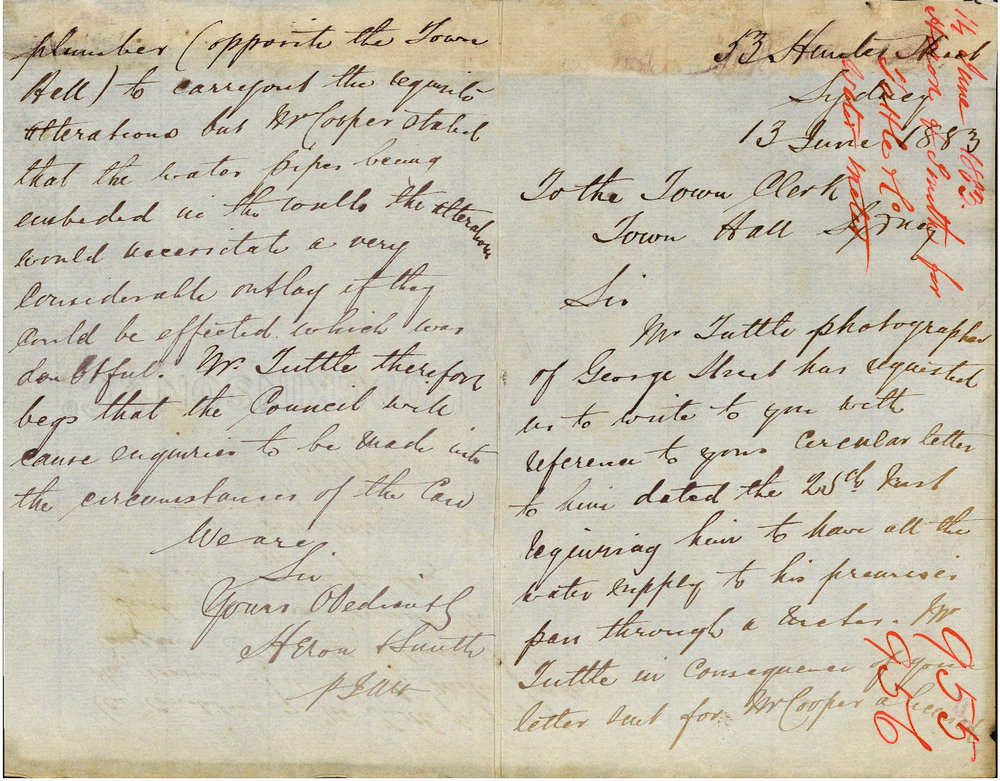 53 Hunter Street
Sydney
13 June 1883
To the Town Clerk
Town Hall Sydney
Sir
Mr Tuttle photographer
of George Street has requested
us to write to you with
reference to your circular letter
to him dated the 25th
requiring him to have all the
water supply to his premises
pass through a meter. Mr
Tuttle in consequence of your
letter sent for Mr Cooper a licensed
plumber (opposite the Town
Hall) to carry out the requisite
alterations but Mr Cooper stated
that the water pipes being
embeded in the walls the alterations
would necessitate a very
considerable outlay if they
could be effected which was
doubtful. Mr Tuttle therefore
begs that the Council will
cause enquiries to be made into
the circumstances of the case
We are
Sir
Yours Obediently
Heron & Smith
14 June 1883.
Heron & Smith for
Tuttle & Co
Water meter
955
956